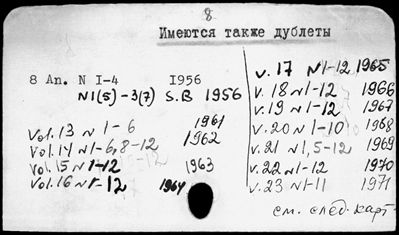 8
Имеются также дублеты
8 An. N I-4 1956
N1(5)-3(7) S.B 1956
Vol.13 N 1-6 1961
Vol.14 N1-6, 8-12 1962
Vol.15 N 1-12 1963
Vol.16 N 1-12 1964
v.17 N1-12 1965
v.18 N1-12 1966
v.19 N1-12 1967
v.20 N1-10 1968
v.21 N1, 5-12 1969
v.22 N1-12 1970
v.23 N1-11 1971
см. след. карт.